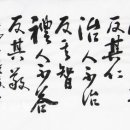 反其仁
治人不治
反其智
禮人不答
反其敬